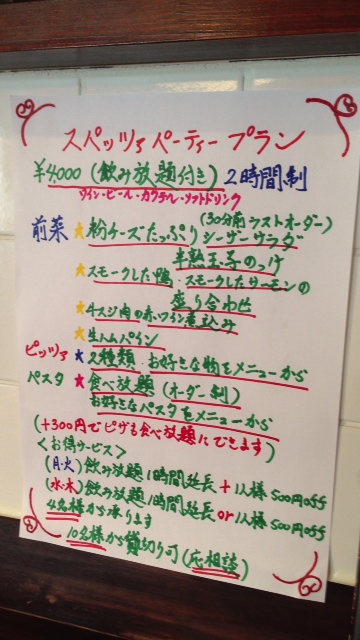 スパッツァ パーティー プラン
¥4000 (飲み放題付き) 2時間制
ワイン・ビール・カクテル・ソフトドリンク
(30分前ラストオーダー)
前菜 ★粉チーズたっぷり シーザーサラダ
半熟玉子のっけ
★スモークした鴨、スモークしたサーモンの
盛り合わせ
★牛スジ肉の赤ワイン煮込み
★生ハムパイン
ピッツァ ★2種類 お好きな物をメニューから
パスタ ★食べ放題 (オーダー制)
お好きなパスタをメニューから
(+300円でピザも食べ放題にできます)
<お得サービス>
(月・火) 飲み放題1時間延長+1人様500円off
(水・木) 飲み放題1時間延長or1人様500円off
4名様から承ります
10名様から貸切り可(応相談)